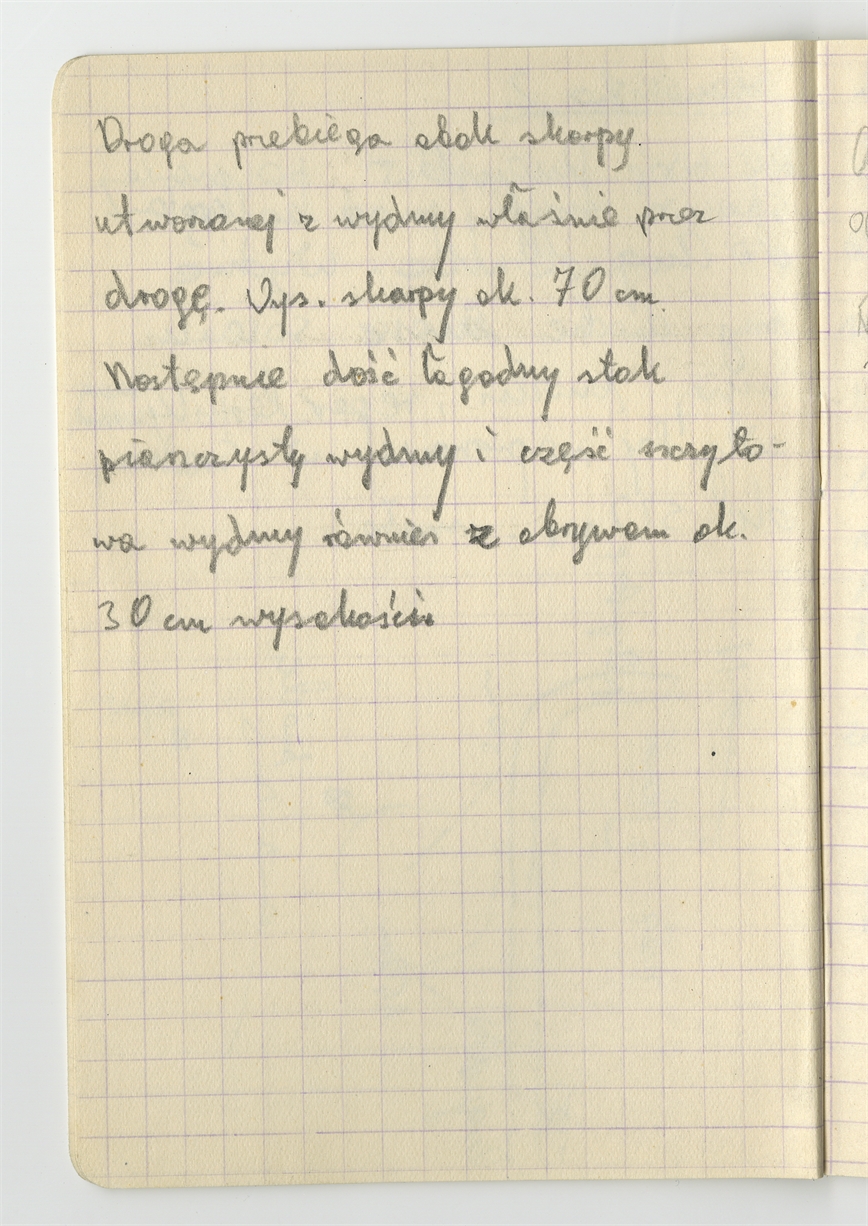 Droga przebiega obok skarpy
utworzonej z wydmy właśnie przez
drogę. Wys. skarpy ok. 70 cm.
Następnie dość łagodny stok
piaszczysty wydmy i część szczyto-
wa wydmy również z obrywem ok.
30 cm wysokości.